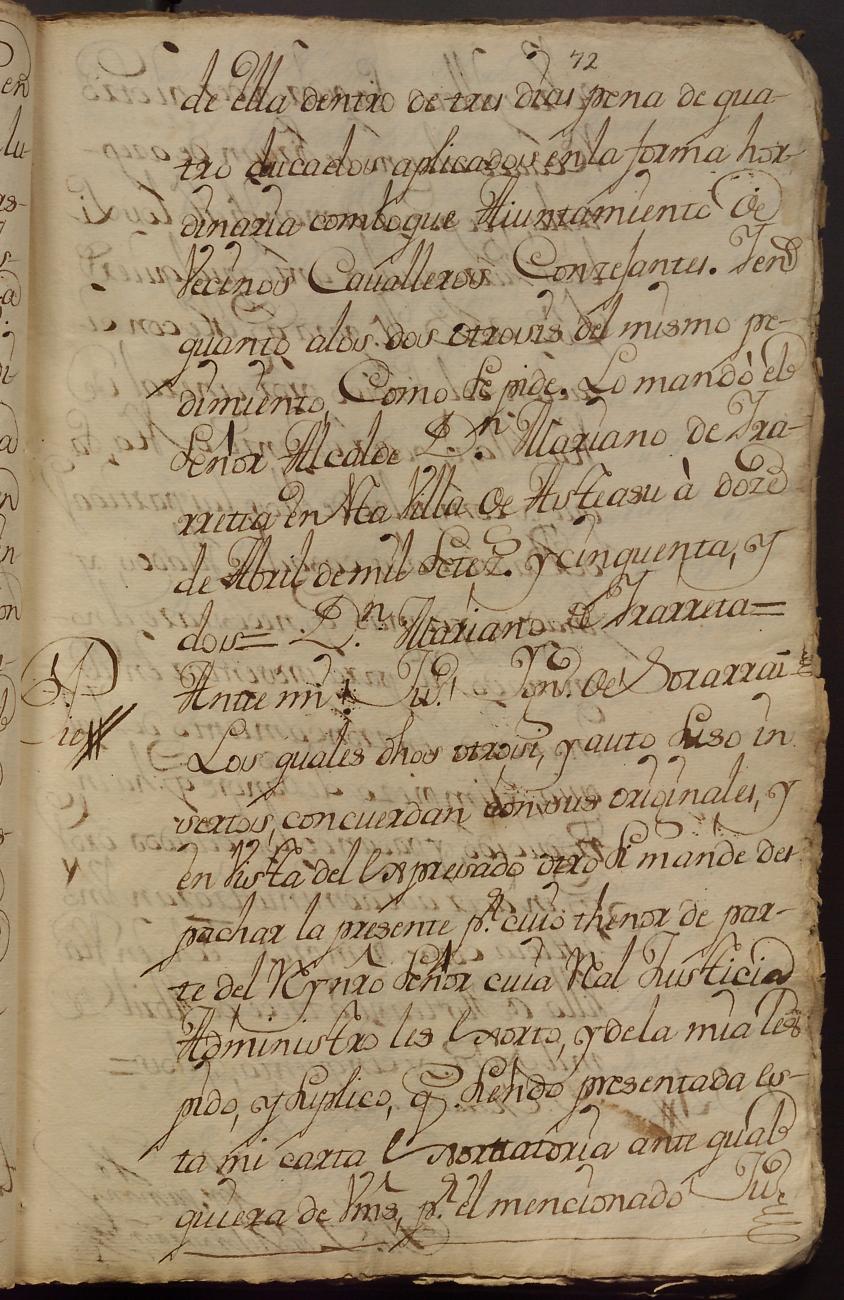 72
de ella dentro de tres dias pena de qua-
tro ducados aplicados en la forma hor-
dinaria como que Aiuntamiento de
Vecinos Cavalleros Conzejantes. Y en
quanto a los dos otrosis del mismo pe-
dimiento, Como se pide. Lo mandò el
Señor Alcalde Dn. Mariano de Yra-
rreta en sta Villa de Asteasu à doze
de Abril de mil setez. y cinquenta, y
dos = Dn. Mariano de Yrarreta =
Ante mi Ju. Ygn. de Sorarrain
Los quales dhos otrosi, y auto suso in
sertos, concuerdan con sus originales, y
en vista del expresado otro se mande des
pachar la presente pr. cuio thenor de par-
te del Rey nro señor cuia Real Justicia
Administro les exorto, y de la mia les
pido, y suplico, q. siendo presentada es-
ta mi carta exortatoria ante qual
quiera de Vms, pr. el mencionado Ju